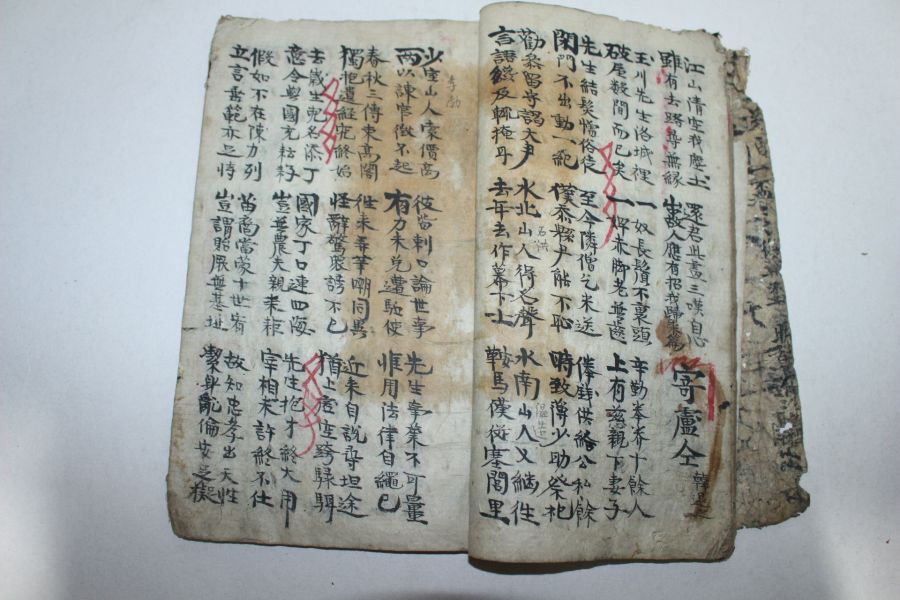 江山清空我塵土 還君此畫三嘆自心 寄盧仝 韓退之
雖有去路尋無緣 故人應有招我歸來篇
玉川先生洛城裡 一奴長鬚不裹頭 辛勤奉養十餘人
破屋數間而已矣 一婢赤脚老無齒 上有慈親下妻子
先生結髮憎俗徒 至今隣僧乞米送 俸錢供給公私餘
閉門不出動一紀 僕忝縣尹能不恥 時致薄少助祭祀
勸參留守謁大尹 水北山人得名聲 石洪 水南山人又繼往
言語纔及輒掩耳 去年去作幕下士 鞍馬僕從塞閭里
少室山人索價高 李渤 彼皆刺口論世事 先生事業不可量
兩以諫官徵不起 有力未免遭駈使 惟用法律自繩己
春秋三傳束高閣 往來弄筆嘲同異 近來自說尋坦途
獨抱遺經究終始 怪辭驚衆謗不已 猶上虛空跨騄駬
去歲生兒名添丁 國家丁口連四海 先生抱才終大用
意令與國充耘耔 豈無農夫親耒耜 宰相未許終不仕
假如不在陳力列 苗裔當蒙十世宥 故知忠孝出天性
立言垂範亦足恃 豈謂貽厥無基址 潔身亂倫安足擬